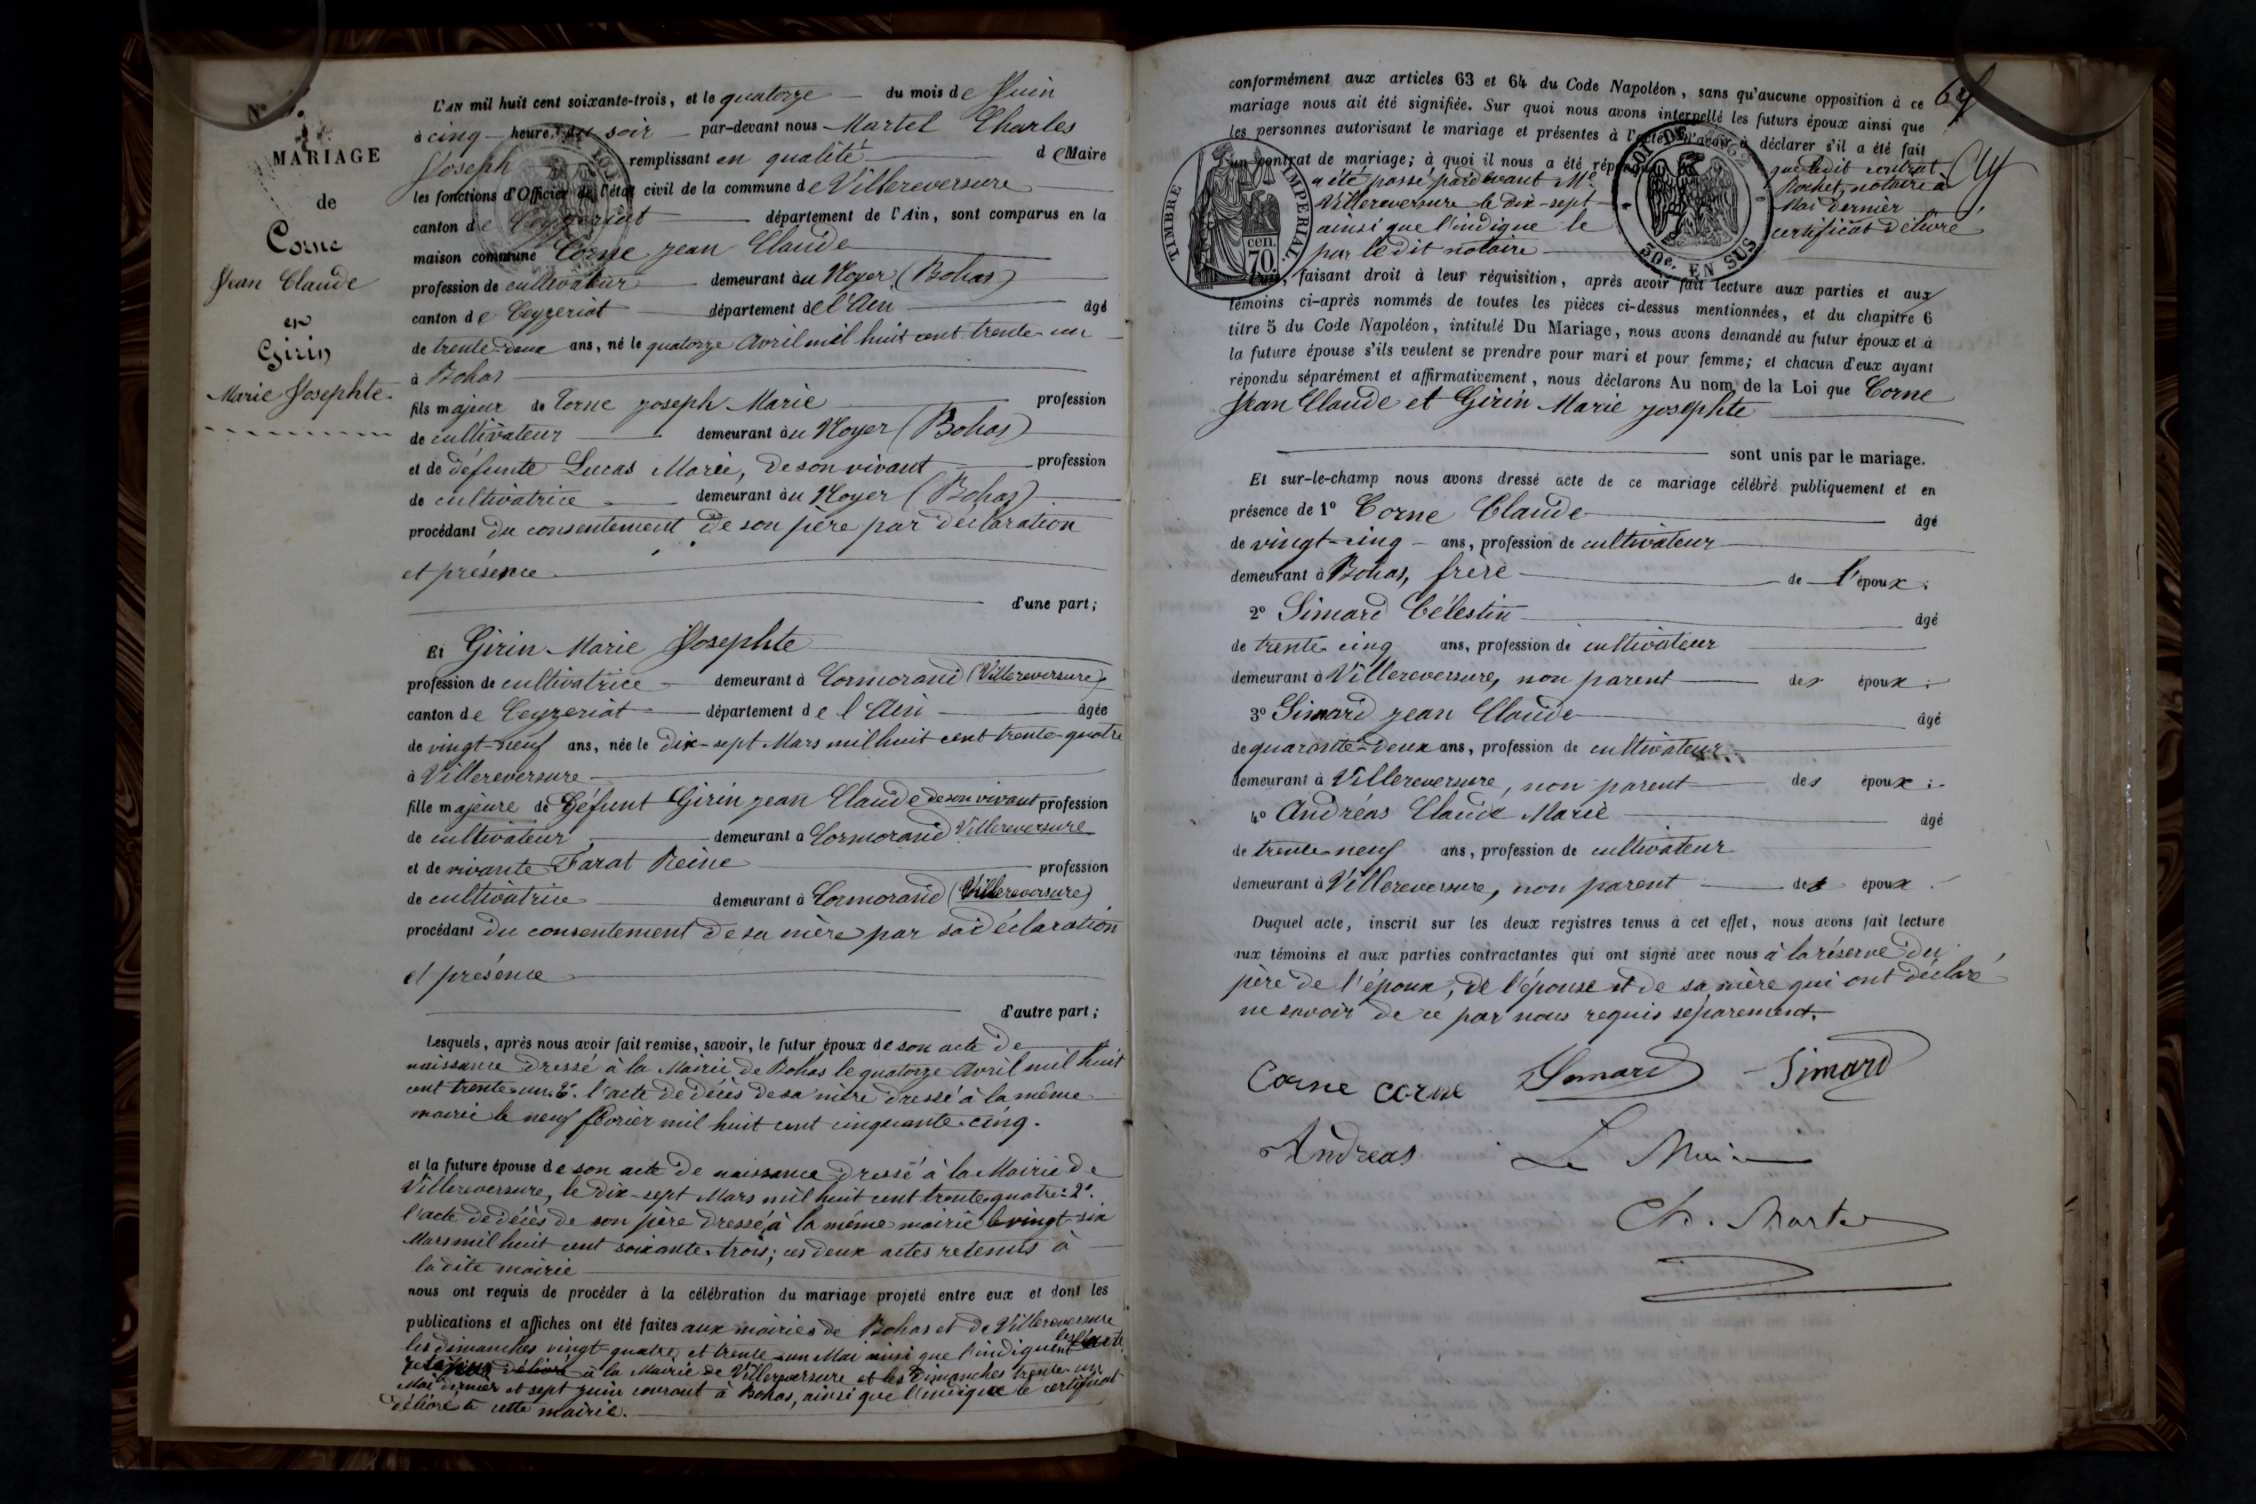 N°
MARIAGE
de
Corne
Jean Claude
et
Girin
Marie Josephte
L'AN mil huit cent soixante-trois, et le quatorze du mois de Juin
à cinq heure du soir par-devant nous Martel Charles
Joseph remplissant en qualité de Maire
les fonctions d'Officier de l'état civil de la commune de Villereversure
canton de Ceyzeriat département de l'Ain, sont comparus en la
maison commune Corne Jean Claude
profession de cultivateur demeurant au Noyer (Bohas)
canton de Ceyzeriat département de l'Ain âgé
de trente-deux ans, né le quatorze Avril mil huit cent trente-un
à Bohas
fils majeur de Corne Joseph Marie profession
de cultivateur demeurant au Noyer (Bohas)
et de défunte Lucas Marie, de son vivant profession
de cultivatrice demeurant au Noyer (Bohas)
procédant du consentement de son père par déclaration
et présence
d'une part;
Et Girin Marie Josephte
profession de cultivatrice demeurant à Cormorand (Villereversure)
canton de Ceyzeriat département de l'Ain âgée
de vingt-neuf ans, née le dix-sept Mars mil huit cent trente-quatre
à Villereversure
fille majeure de défunt Girin Jean Claude de son vivant profession
de cultivateur demeurant à Cormorand Villereversure
et de vivante Farat Reine profession
de cultivatrice demeurant à Cormorand (Villereversure)
procédant du consentement de sa mère par sa déclaration
et présence
d'autre part;
Lesquels, après nous avoir fait remise, savoir, le futur époux de son acte de
naissance dressé à la Mairie de Bohas le quatorze Avril mil huit
cent trente-un. 2°. l'acte de décès de sa mère dressé à la même
mairie le neuf février mil huit cent cinquante-cinq.
et la future épouse de son acte de naissance dressé à la Mairie de
Villereversure, le dix-sept Mars mil huit cent trente-quatre: 2°.
l'acte de décès de son père dressé à la même mairie le vingt-six
Mars mil huit cent soixante-trois; ces deux actes retenus à
ladite mairie
nous ont requis de procéder à la célébration du mariage projeté entre eux et dont les
publications et affiches ont été faites aux mairies de Bohas et de Villereversure
les dimanches vingt quatre, et trente-un Mai ainsi que l'indiquent les actes
à la Mairie de Villereversure et les Dimanches trente-un
Mai dernier et sept juin courant à Bohas, ainsi que l'indique le certificat
délivré à cette mairie.
64
conformément aux articles 63 et 64 du Code Napoléon, sans qu'aucune opposition à ce
mariage nous ait été signifiée. Sur quoi nous avons interpellé les futurs époux ainsi que
les personnes autorisant le mariage et présentes à l'acte, d'avoir à déclarer s'il a été fait
un contrat de mariage; à quoi il nous a été répondu que ledit contrat
a été passé pardevant Me. Rochet, notaire à
Villereversure le dix-sept Mai dernier
ainsi que l'indique le certificat délivré
par le dit notaire
TIMBRE IMPERIAL.
70 cen.
LOI DE 1862
50c. EN SUS
faisant droit à leur réquisition, après avoir fait lecture aux parties et aux
témoins ci-après nommés de toutes les pièces ci-dessus mentionnées, et du chapitre 6
titre 5 du Code Napoléon, intitulé Du Mariage, nous avons demandé au futur époux et à
la future épouse s'ils veulent se prendre pour mari et pour femme; et chacun d'eux ayant
répondu séparément et affirmativement, nous déclarons Au nom de la Loi que Corne
Jean Claude et Girin Marie Josephte
sont unis par le mariage.
Et sur-le-champ nous avons dressé acte de ce mariage célébré publiquement et en
présence de 1° Corne Claude âgé
de vingt-cinq ans, profession de cultivateur
demeurant à Bohas, frère de l'époux;
2° Simard Célestin âgé
de trente-cinq ans, profession de cultivateur
demeurant à Villereversure, non parent des époux;
3° Simard Jean Claude âgé
de quarante-deux ans, profession de cultivateur
demeurant à Villereversure, non parent des époux;
4° Andréas Claude Marie âgé
de trente-neuf ans, profession de cultivateur
demeurant à Villereversure, non parent des époux.
Duquel acte, inscrit sur les deux registres tenus à cet effet, nous avons fait lecture
aux témoins et aux parties contractantes qui ont signé avec nous à la réserve du
père de l'époux, de l'épouse et de sa mère qui ont déclaré
ne savoir de ce par nous requis séparément.
Corne Corne Simard Simard
Andreas Le Maire
Ch. Martel